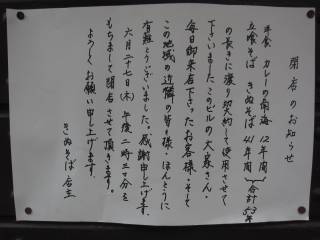 閉店のお知らせ
洋食 カレーの南海 12年間
立喰そば きぬそば 41年間 合計53年
の長きに渡り契約して使用させて
下さいました、このビルの大家さん・
毎日御来店下さったお客様・そして
この地域の近隣の皆々様・ほんとうに
有難とうございました。感謝申し上げます。
六月二十七日(木)午後二時三十分を
もちまして閉店させて頂きます。
よろしくお願い申し上げます。
きぬそば店主